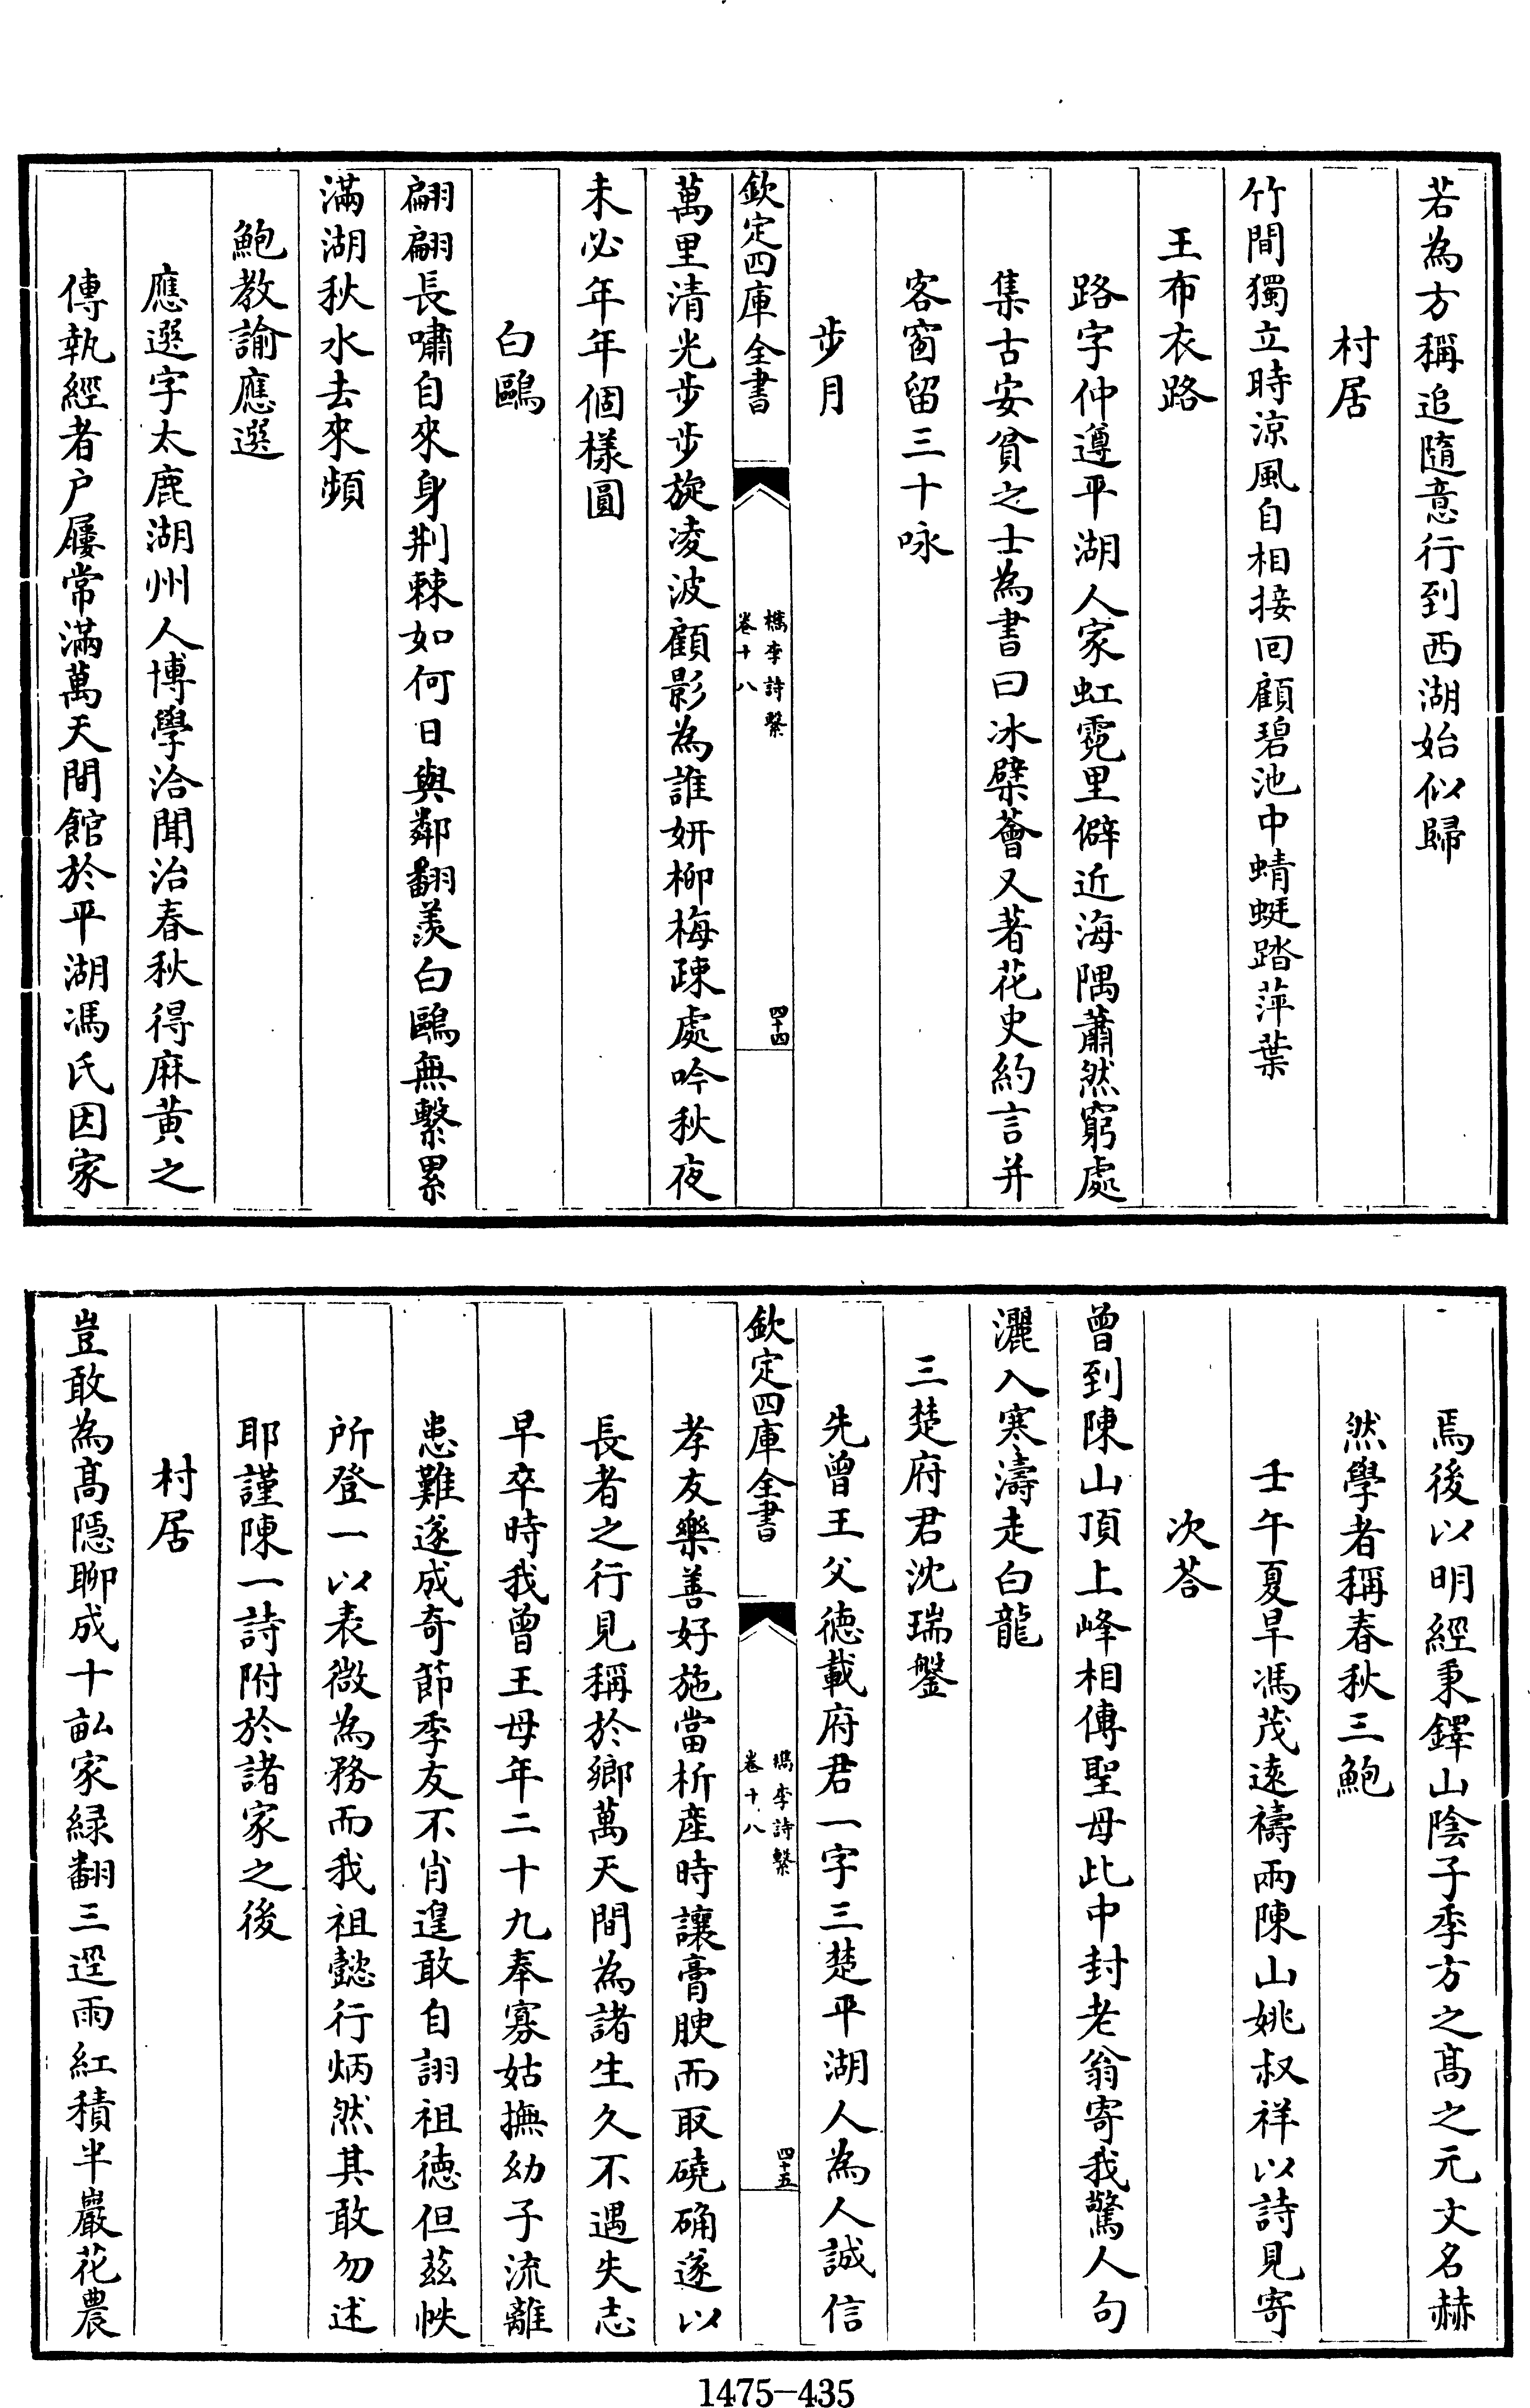 若為方稱追隨意行到西湖始似歸
村居
竹間獨立時涼風自相接回顧碧池中蜻蜓踏萍葉
王布衣路
路字仲遵平湖人家虹霓里僻近海隅蕭然窮處
集古安貧之士為書曰冰櫱薈又著花史約言并
客窗留三十咏
步月
欽定四庫全書
檇李詩繫
卷十八
四十四
萬里清光步步旋凌波顧影為誰妍柳梅疎處吟秋夜
未必年年個樣圓
白鷗
翩翩長嘯自來身荆棘如何日與鄰翻羡白鷗無繫累
滿湖秋水去來頻
鮑教諭應選
應選字太鹿湖州人博學洽聞治春秋得麻黄之
傳執經者户屨常滿萬天間館於平湖馮氏因家
焉後以明經秉鐸山陰子季方之髙之元文名赫
然學者稱春秋三鮑
壬午夏旱馮茂遠禱雨陳山姚叔祥以詩見寄
次荅
曾到陳山頂上峰相傳聖母此中封老翁寄我驚人句
灑入寒濤走白龍
三楚府君沈瑞鏧
先曾王父徳載府君一字三楚平湖人為人誠信
欽定四庫全書
檇李詩繫
卷十八
四十五
孝友樂善好施當析産時讓膏腴而取磽确遂以
長者之行見稱於鄉萬天間為諸生久不遇失志
早卒時我曾王母年二十九奉寡姑撫幼子流離
患難遂成奇節季友不肖遑敢自詡祖徳但兹帙
所登一以表微為務而我祖懿行炳然其敢勿述
耶謹陳一詩附於諸家之後
村居
豈敢為髙隱聊成十畝家緑翻三逕雨紅積半巖花農
1475-435